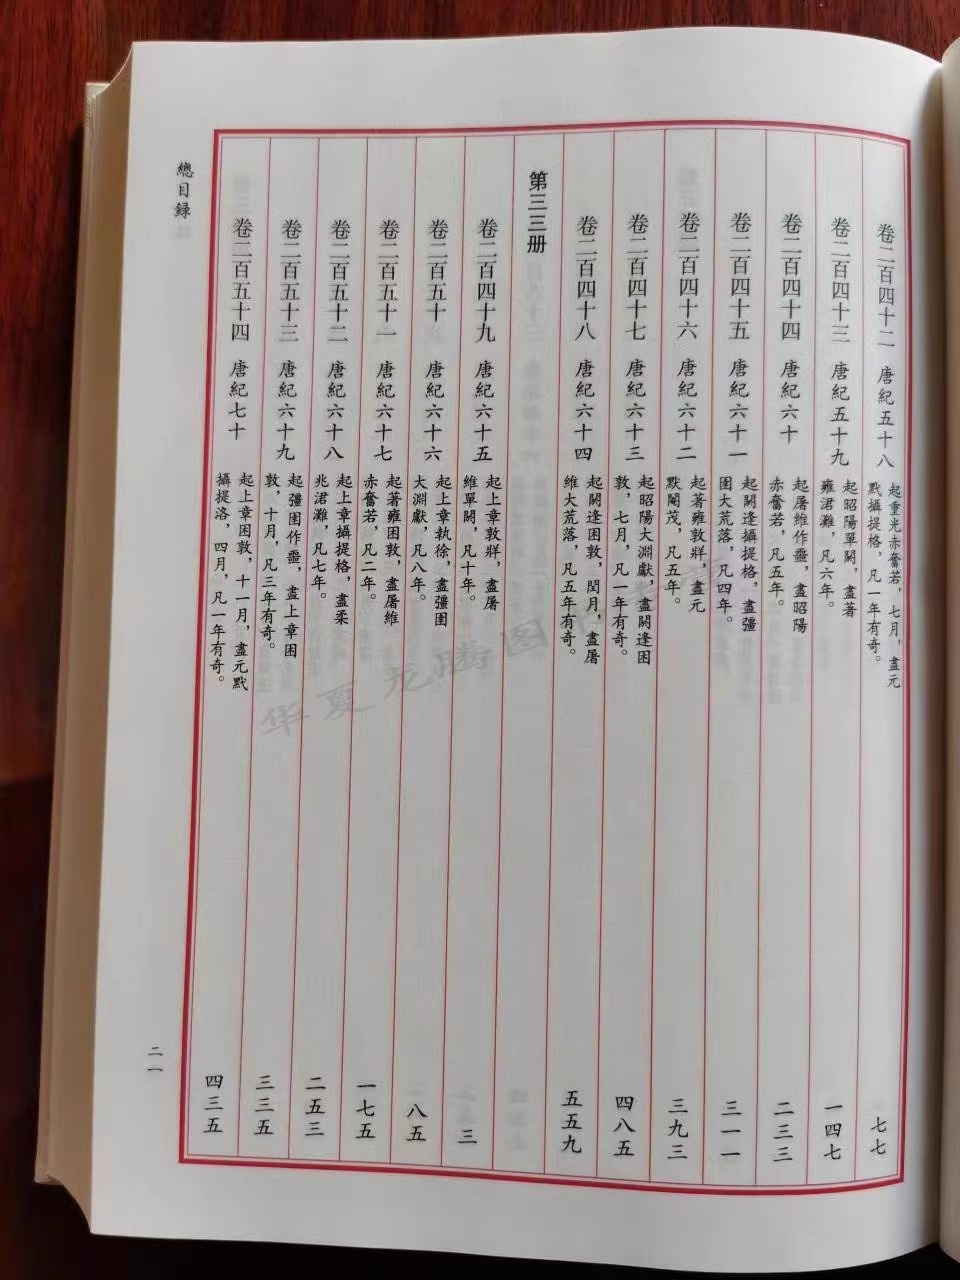 卷二百四十二　唐紀五十八　起重光赤奮若，七月，盡元
默攝提格，凡一年有奇。　七七
卷二百四十三　唐紀五十九　起昭陽單閼，盡著
雍涒灘，凡六年。　一四七
卷二百四十四　唐紀六十　起屠維作噩，盡昭陽
赤奮若，凡五年。　二三三
卷二百四十五　唐紀六十一　起閼逢攝提格，盡彊
圉大荒落，凡四年。　三一一
卷二百四十六　唐紀六十二　起著雍敦牂，盡元
默閹茂，凡五年。　三九三
卷二百四十七　唐紀六十三　起昭陽大淵獻，盡閼逢困
敦，七月，凡一年有奇。　四八五
卷二百四十八　唐紀六十四　起閼逢困敦，閏月，盡屠
維大荒落，凡五年有奇。　五五九
第三三册
卷二百四十九　唐紀六十五　起上章敦牂，盡屠
維單閼，凡十年。　三
卷二百五十　唐紀六十六　起上章執徐，盡彊圉
大淵獻，凡八年。　八五
卷二百五十一　唐紀六十七　起著雍困敦，盡屠維
赤奮若，凡二年。　一七五
卷二百五十二　唐紀六十八　起上章攝提格，盡柔
兆涒灘，凡七年。　二五三
卷二百五十三　唐紀六十九　起彊圉作噩，盡上章困
敦，十月，凡三年有奇。　三三五
卷二百五十四　唐紀七十　起上章困敦，十一月，盡元默
攝提洛，四月，凡一年有奇。　四三五
總目録
二一
华夏龙腾图